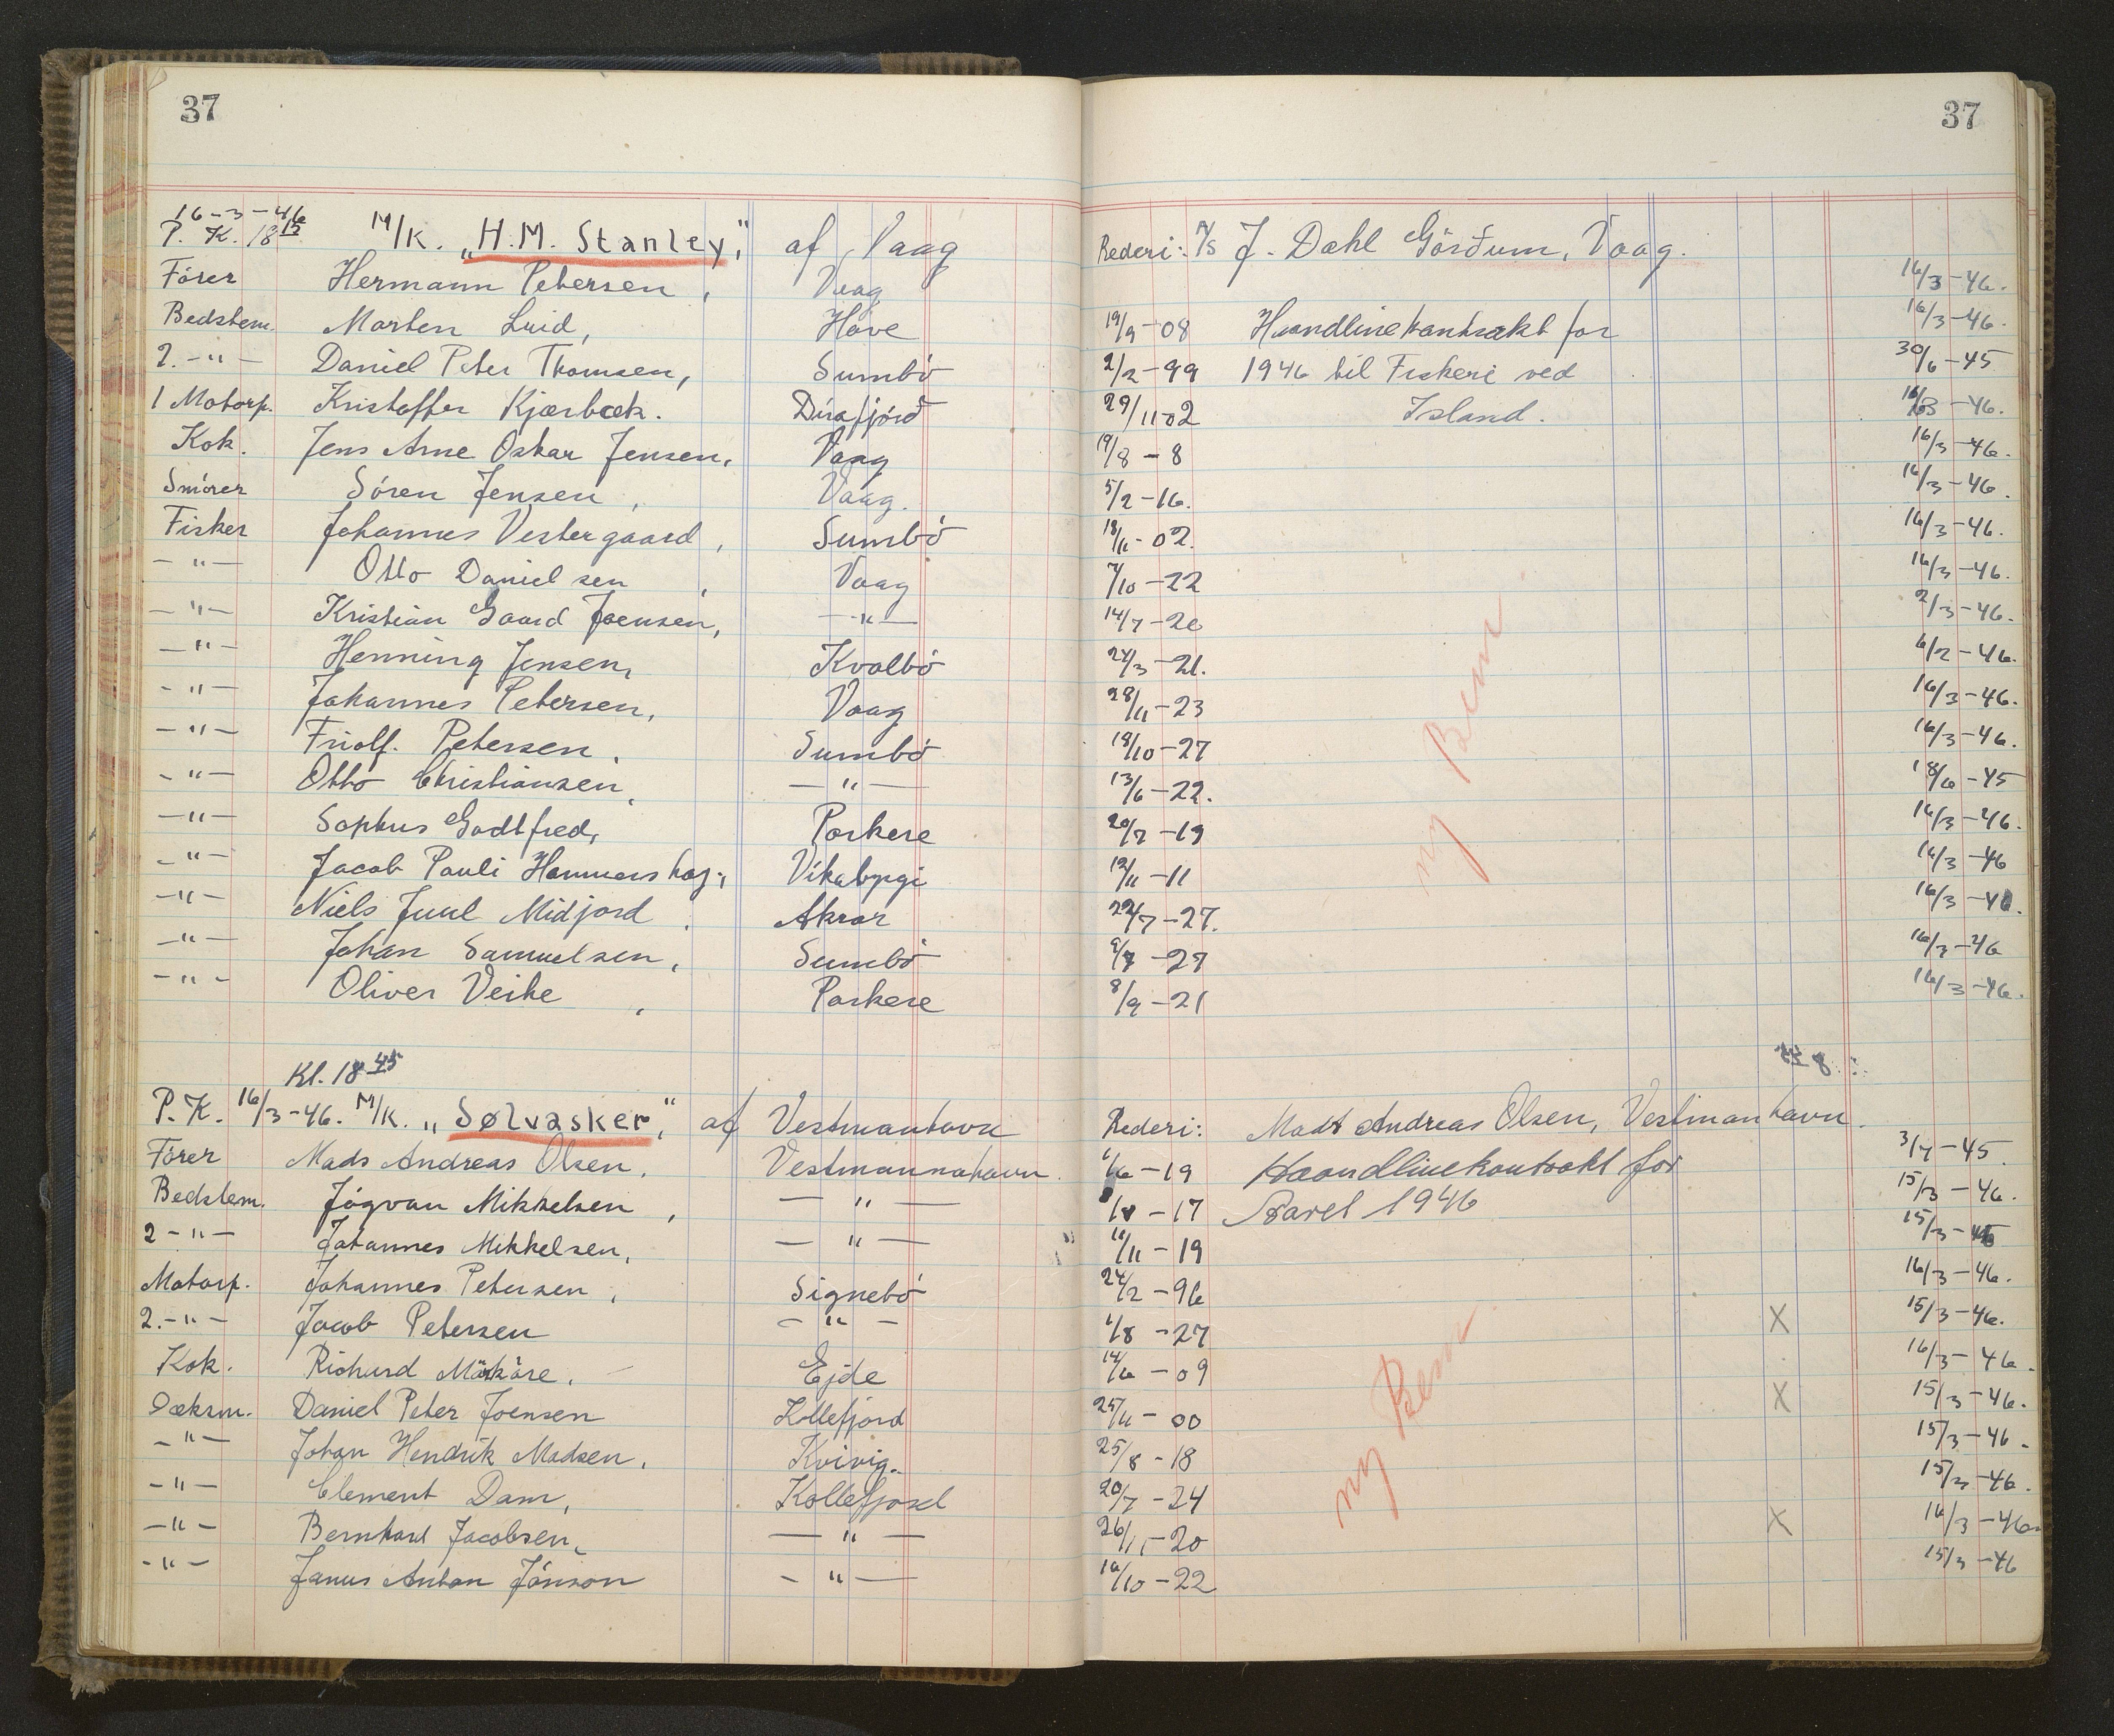 37 37
16-3-46
P. K. 18 15 M/K. „H.M. Stanley," af Vaag Rederi: A/S J. Dahl Görðum, Vaag.
Förer Hermann Petersen, Vaag 16/3-46.
Bedstem. Morten Luid, Hove 19/9-08 Haandlinekontrakt for 16/3-46.
2. -"- Daniel Peter Thomsen, Sumbö 2/2-99 1946 til Fiskeri ved 30/6-45
1 Motorp. Kristoffer Kjærbæk. Dírafjörð 29/11-02 Island. 16/3-46.
Kok. Jens Arne Oskar Jensen, Vaag 19/8-8 16/3-46.
Smörer Sören Jensen, Vaag. 5/2-16. 16/3-46.
Fisker Johannes Vestergaard, Sumbö 18/11-02. 16/3-46.
-"- Otto Danielsen, Vaag 7/10-22 16/3-46.
-"- Kristian Gaard Joensen, -"- 14/7-20 2/3-46.
-"- Henning Jensen, Kvalbö 24/3-21. 6/2-46.
-"- Johannes Petersen, Vaag 28/11-23 16/3-46.
-"- Friolf. Petersen, Sumbö 18/10-27 16/3-46.
-"- Otto Christiansen, -"- 13/6-22. 18/6-45
-"- Sophus Godtfred, Porkere 20/7-19 16/3-46.
-"- Jacob Pauli Hammershaj, Víkabyrgi 12/11-11 16/3-46
-"- Niels Juul Midjord, Akrar 22/7-27. 16/3-46.
-"- Johan Samuelsen, Sumbö 9/7-27 16/3-46
-"- Oliver Veihe, Porkere 8/9-21 16/3-46.
ny Bem
Kl. 18 45
P. K. 16/3-46. M/K. „Sølvasker," af Vestmanhavn Rederi: Mads Andreas Olsen, Vestmanhavn.
Förer Mads Andreas Olsen, Vestmannahavn. 1/6-19 Haandlinekontrakt for 3/7-45.
Bedstem. Jógvan Mikkelsen, -"- -17 Aaret 1946 15/3-46.
2 -"- Johannes Mikkelsen, -"- 11/11-19 15/3-46
Motorp. Johannes Petersen, Signebö 24/2-96 16/3-46.
2. -"- Jacob Petersen -"- 1/8-27 X 15/3-46.
Kok. Richard Mørkøre, Ejde 14/6-09 16/3-46.
Dæksm. Daniel Peter Joensen Kollefjord 25/11-00 X 15/3-46.
-"- Johan Hendrik Madsen, Kvivig. 25/8-18 15/3-46.
-"- Clement Dam, Kollefjord 20/7-24 15/3-46.
-"- Bernhard Jacobsen, -"- 26/11-20 X 16/3-46
-"- Janus Anton Jónson -"- 16/10-22 15/3-46
ny Bem